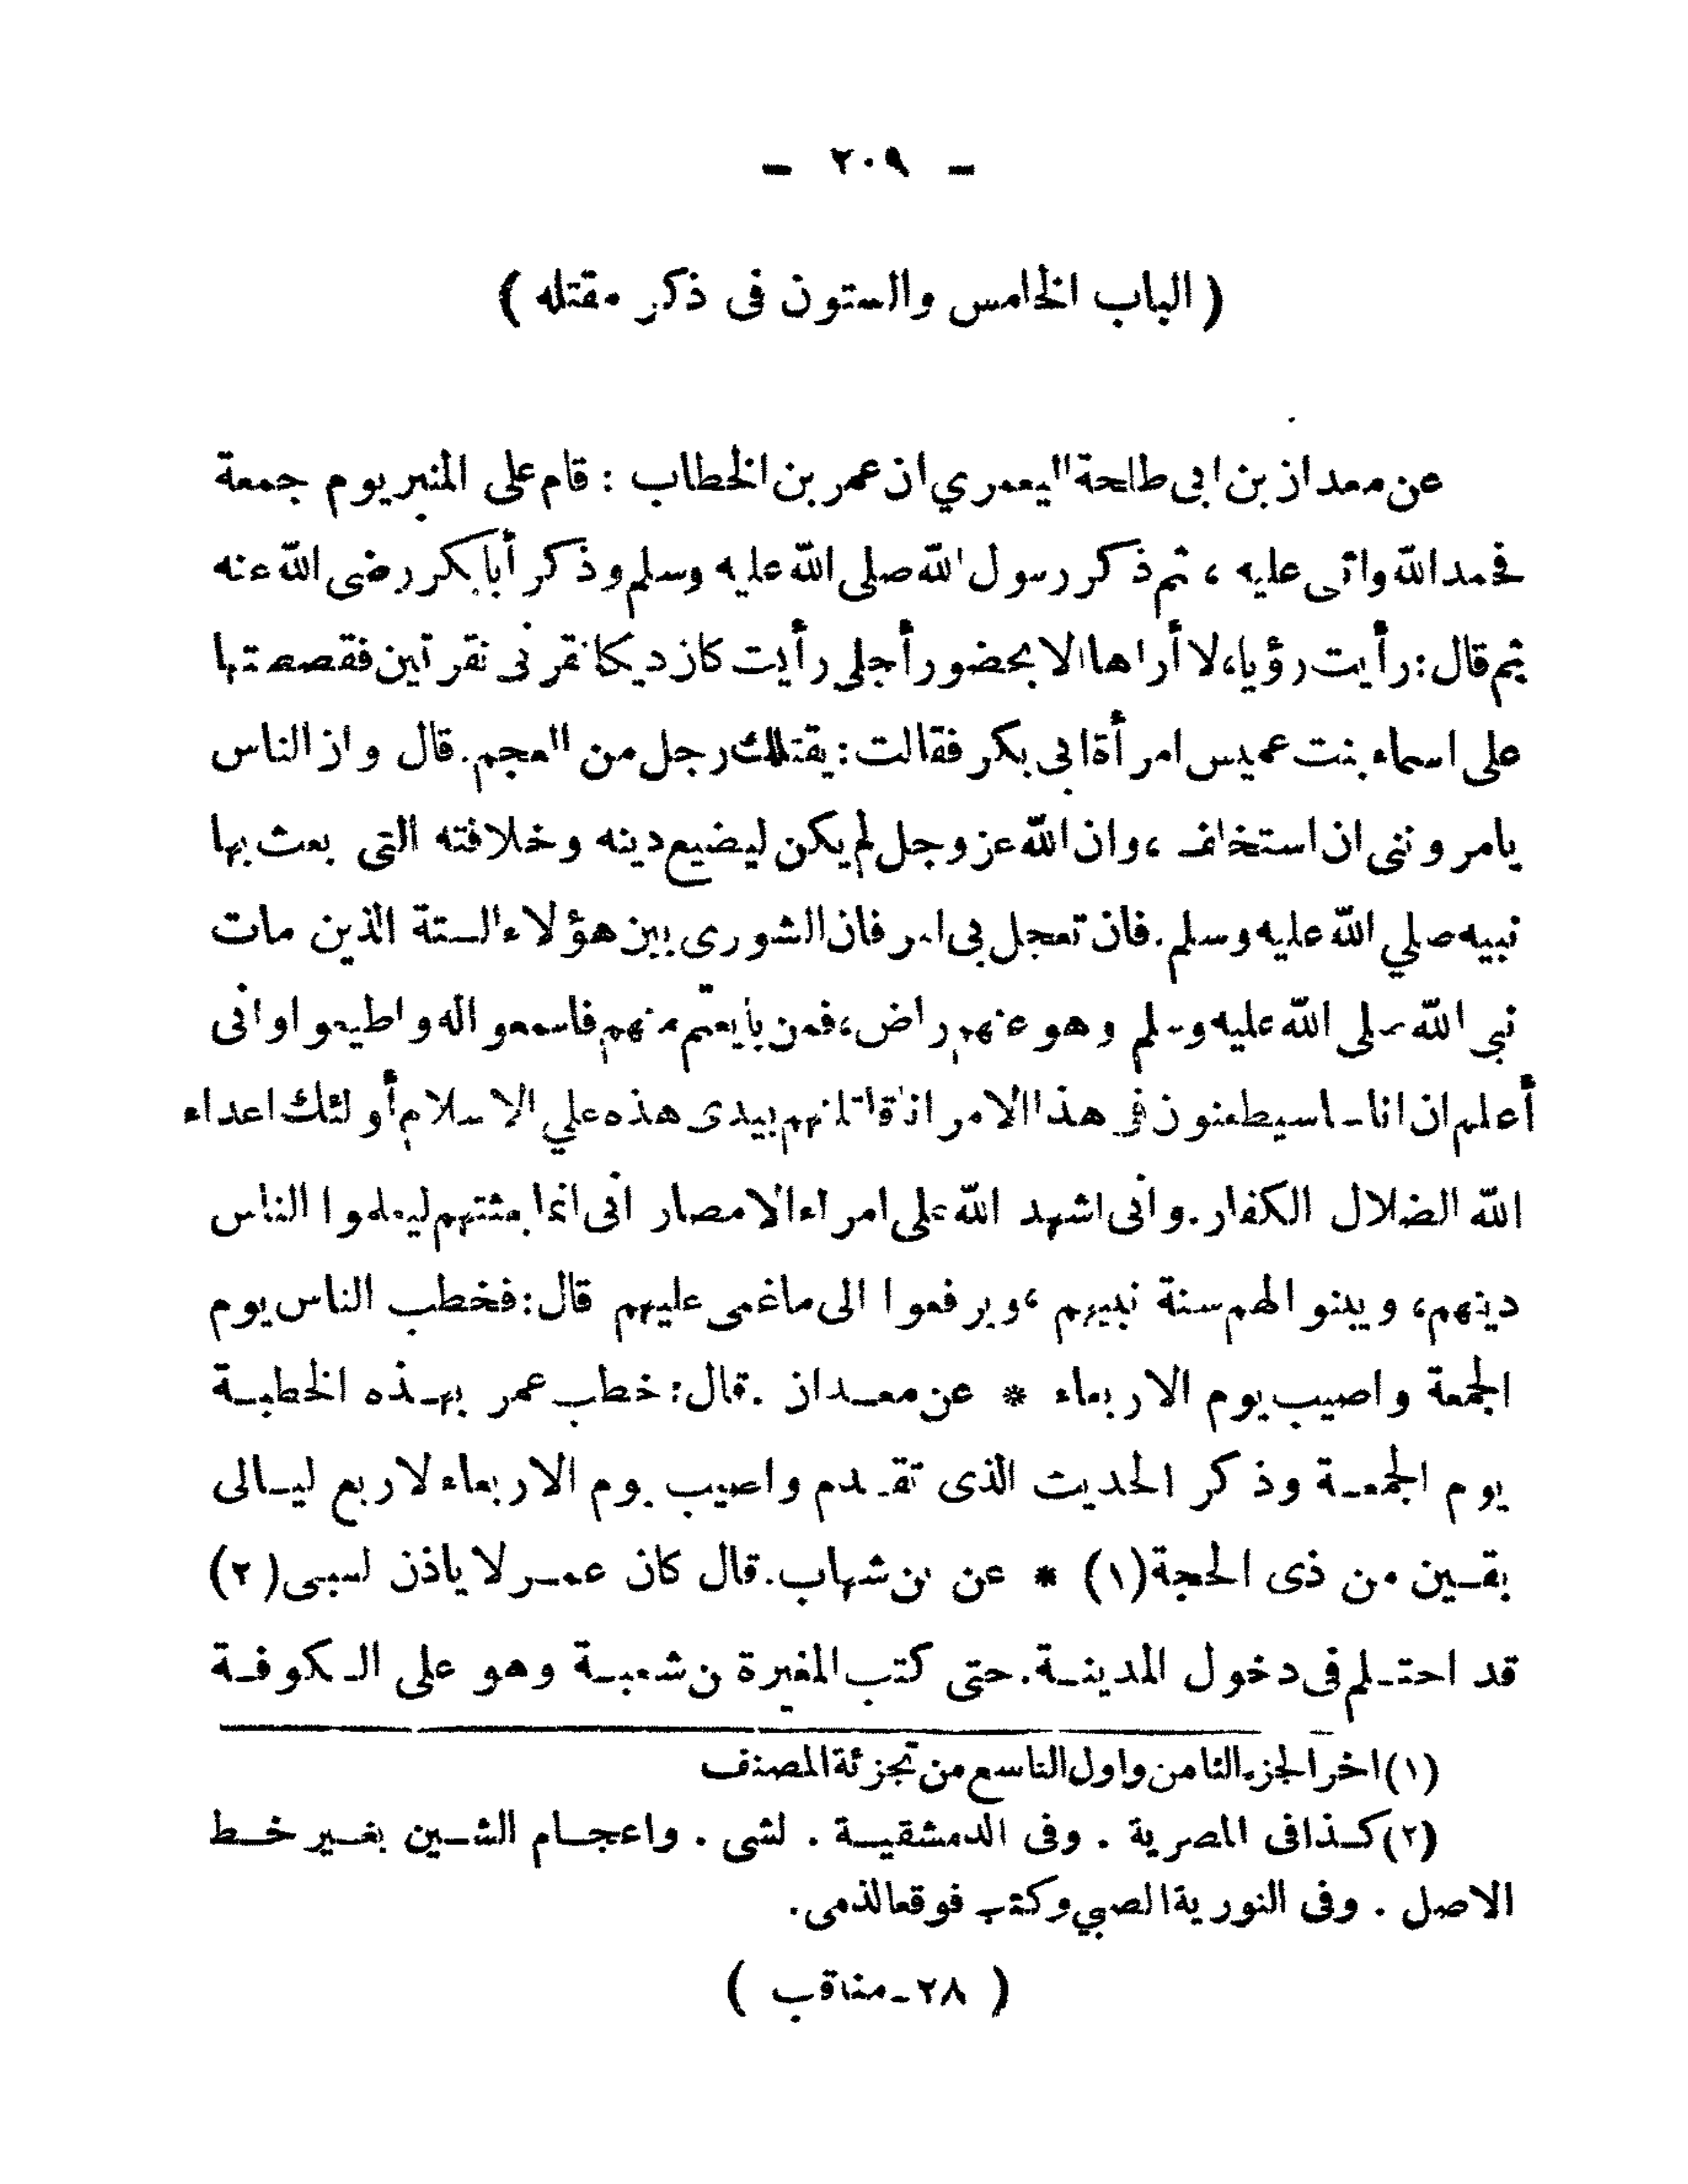 - ٢٠٩ -
( الباب الخامس والستون فى ذكر مقتله )
عن معدان بن ابى طلحة اليعمري ان عمر بن الخطاب : قام على المنبر يوم جمعة
فحمد الله واثنى عليه ، ثم ذكر رسول الله صلى الله عليه وسلم وذكر أبا بكر رضى الله عنه
ثم قال : رأيت رؤيا، لا أراها الا بحضور أجلى رأيت كان ديكا نقرنى نقرتين فقصصتها
على اسماء بنت عميس امرأة ابى بكر فقالت : يقتلك رجل من العجم . قال وان الناس
يامروننى ان استخلف ، وان الله عز وجل لم يكن ليضيع دينه وخلافته التى بعث بها
نبيه صلي الله عليه وسلم . فان تعجل بى امر فان الشورى بين هؤلاء الستة الذين مات
نبى الله صلى الله عليه وسلم وهو عنهم راض ، فمن بايعتم منهم فاسمعوا له واطيعوا وانى
أعلم ان اناسا سيطعنون فى هذا الامر انا قاتلتهم بيدى هذه علي الاسلام أولئك اعداء
الله الضلال الكفار . وانى اشهد الله على امراء الامصار انى انما بعثتهم ليعلموا الناس
دينهم ، ويبينوا لهم سنة نبيهم ، ويرفعوا الى ماغمى عليهم قال : فخطب الناس يوم
الجمعة واصيب يوم الاربعاء * عن معدان . قال : خطب عمر بهذه الخطبة
يوم الجمعة وذكر الحديث الذى تقدم واصيب يوم الاربعاء لاربع ليالى
بقين من ذى الحجة (١) * عن بن شهاب . قال كان عمر لا ياذن لسبى (٢)
قد احتلم فى دخول المدينة . حتى كتب المغيرة بن شعبة وهو على الكوفة
(١) اخر الجزء الثامن واول التاسع من تجزئة المصنف
(٢) كذا فى المصرية . وفى الدمشقية . لشى . واعجام الشين بغير خط
الاصل . وفى النورية الصبي وكتب فوقها الذمى .
( ٢٨ - مناقب )